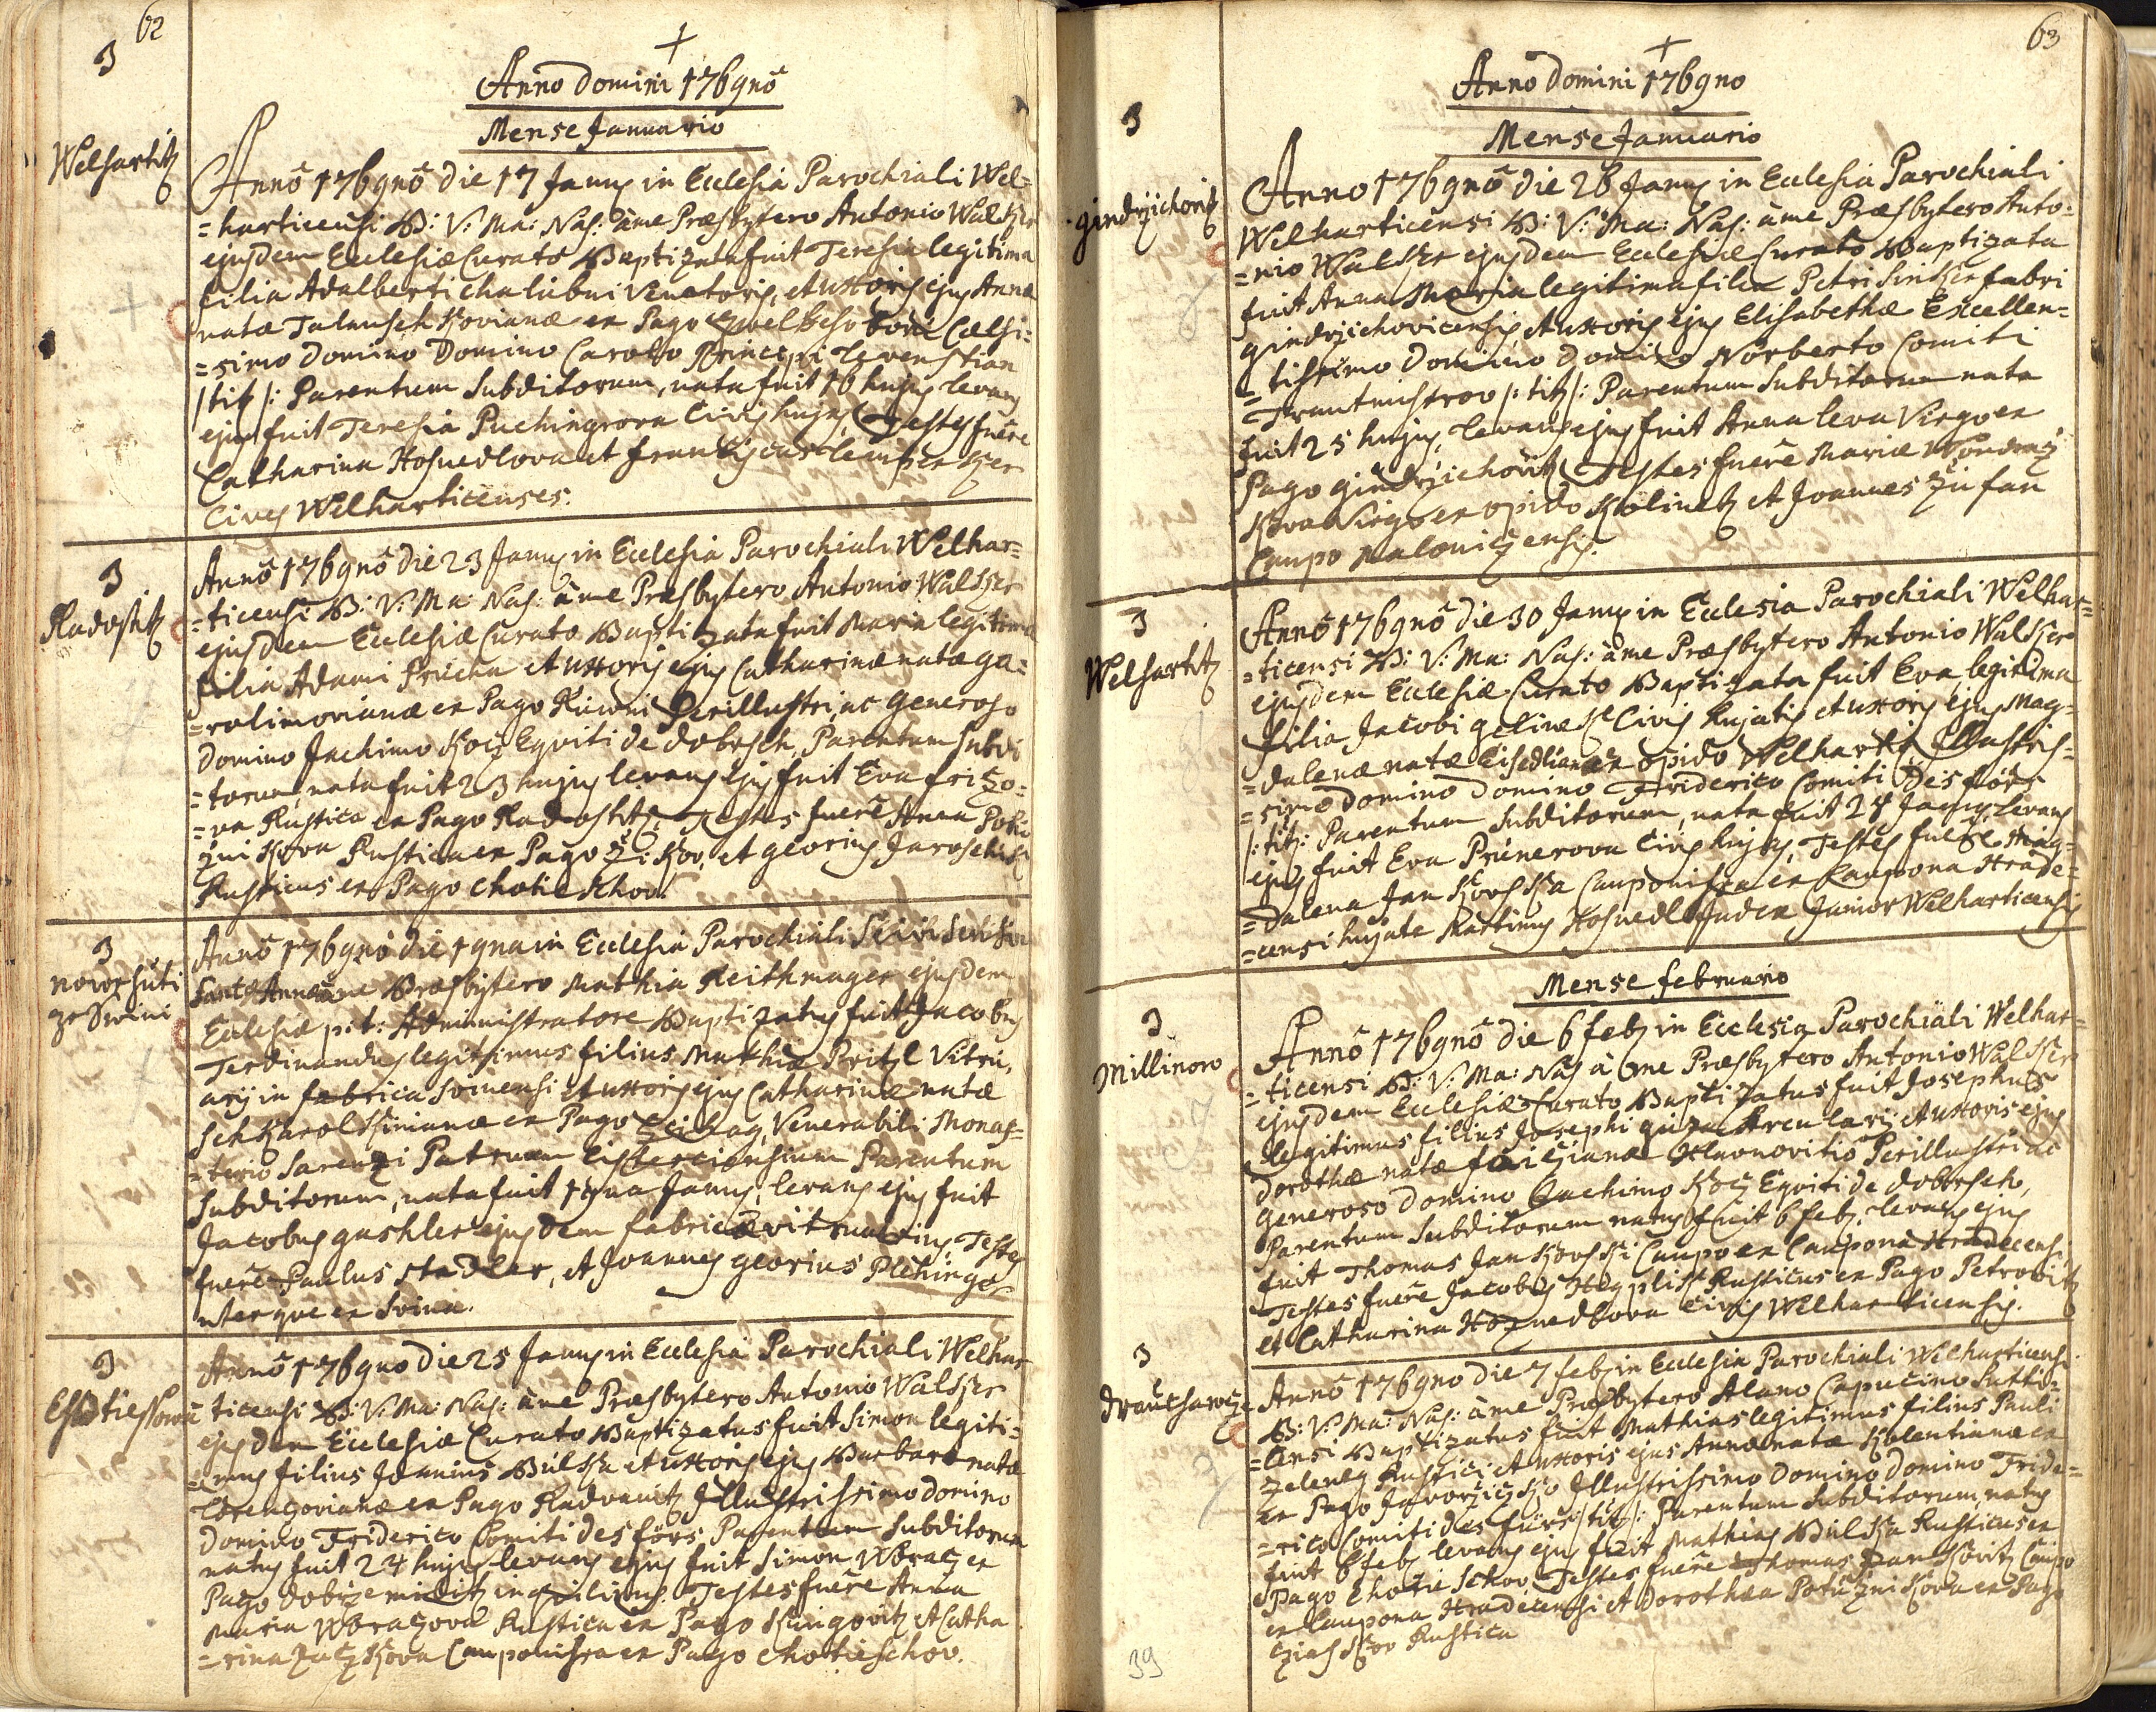 62
3
+
Anno Domini 1769nô
Mense Januario
Welhartitz
Annô 1769nô die 17 Januȷ in Ecclesia Parochiali Wel=
=harticensi B: V: Ma: Nas: â me Præsbytero Antonio Walkzer
ejusdem Ecclesiæ Curato Baptizata fuit Teresia legitima
filia Adalberti Chalubni Venatoris, et uxoris ejus Annæ
natæ ex Pago boni Celsi=
=simo Domino Domino Carolo Principi Levenstian
/titz/: Parentum Subditorum, nata fuit 16 hujus levans
ejus fuit Teresia Puchingrova Civis hujus, Testes fuêre
Catharina Hosnedlova et
Cives Welharticenses.
3
Radostitz
Annô 1769nô die 23 Januȷ in Ecclesia Parochiali Welhar=
=ticensi B: V: Ma: Nas: â me Præsbytero Antonio Walkzer
ejusdem Ecclesiæ Curato Baptizata fuit Maria legitima
filia Adami Prucha et uxoris ejus Catharinæ natæ ga=
=rolimovianæ ex Pago Perillustri, ac Generoso
Domino Jachimo Kocz Eqviti de Dobrsch, Parentum Subdi
=torum, nata fuit 23 hujus levans ejus fuit Eva frizo=
=va Rustica ex Pago Radostitz, Testes fuerê Anna
Rustica ex Pago et georius Jaroschik
Rusticus ex Pago Chotieschov.
3
nove huti
ze Swini
Annô 1769nô die 19na in Ecclesia Parochiali
Sanctæ Annæ â me Præsbytero Mathia Reithmager ejusdem
Ecclesiæ p: t: Administratore Baptizatus fuit Jacobus
Ferdinandus legitimus filius Mathiæ Pritzl Vitri,
arij in fabrica Svinensi et uxoris ejus Catharinæ natæ
ex Pago Venerabili Monas=
=terio Patrum Cisterciensium Parentum
Subditorum, nata fuit 19na Januȷ, levans ejus fuit
Jacobus gashler ejusdem fabricæ vitriarius, Testes
fuerê Paulus Stadler, et Joannes georius Plehinger
uterqve ex Svina.
3
Annô 1769nô die 25 Januȷ in Ecclesia Parochiali Welhar
ticensi B: V: Ma: Nas: â me Præsbytero Antonio Walkzer
ejusdem Ecclesiæ Curato Baptizatus fuit Simon legiti=
=mus filius Joannis Bulka et uxoris ejus Barbaræ natæ
Lorenzovianæ ex Pago Radvanitz Illustrissimo Domino
Domino Friderico Comiti des förs, Parentum Subditorum
natus fuit 24 hujus levans ejus fuit Simon Wbracz ex
Pago inqvilinus. Testes fuêre Anna
Maria Wbraczova Rustica ex Pago Kungovitz et Catha
=rina Caupouissa ex Pago Chotieschov.
63
+
Anno Domini 1769no
3
Mense Januario
gindrzichovitz
Anno 1769nô die 26 Januȷ in Ecclesia Parochiali
Welharticensi B: V: Ma: Nas: â me Præsbytero Anto=
=nio Walkzer ejusdem Ecclesiæ Curato Baptizata
fuit Anna Maria legitima filia Petri fabri
gindrzichovicensis, et uxoris ejus Elisabethæ Excellen=
=tissimo Domino Domino Norberto Comiti
/: titz/: Parentum Subditorum nata
fuit 25 hujus, levans ejus fuit Anna Virgo ex
Pago gindrzichovitz, Testes fuerê Mariæ
Virgo ex opido Kolinetz et Joannes
Caupo Maloniczensis.
3
Welhartitz
Annô 1769nô die 30 Januȷ in Ecclesia Parochiali Welhar=
=ticensi B: V: Ma: Nas: â me Præsbytero Antonio Walkzer
ejusdem Ecclesiæ Curato Baptizata fuit Eva legitima
filia Jacobi Civis hujatis et uxoris ejus Mag=
=dalenæ natæ ex opido Welhartitz Illustris=
=simo Domino Domino Friderico Comiti Des förs
/: titz: Parentum Subditorum, nata fuit 29 Januȷ, levans
ejus fuit Eva Prunerova Civis hujas, Testes fuere Mag=
=dalena Jankovska Cauponissa ex Caupona Hrade=
=censi hujate Martinus Hosnedl Judex Junior Welharticensis
Mense februario
3
Millinow
Annô 1769nô die 6 febȷ in Ecclesia Parochiali Welhar=
=ticensi B: V: Ma: Nas â me Præsbytero Antonio Walkzer
ejusdem Ecclesiæ Curato Baptizatus fuit Josephus
legitimus filius Josephi Arculary et uxoris ejus
Dorothæ natæ Perillustri ac
Generoso Domino Jachimo Kocz Eqviti de Dobrsch,
Parentum Subditorum natus fuit 6 febȷ, levans ejus
fuit Thomas Jankovski Caupo ex Caupona Hradecensi
Testes fuerê Jacobus Rusticus ex Pago Petrovitz
et Catharina Hoznedlova Civis Welharticensis.
3
Annô 1769no die 7 febȷ in Ecclesia Parochiali Welharticensi
B: V: Ma: Nas: â me Præsbytero Alano Capucino Sutti=
=censi Baptizatus fuit Mathias legitimus filius Pauli
zeleney Rustici, et uxoris ejus Annæ natæ
ex Pago Illustrissimo Domino Domino Fride=
=rico Comiti des fürs /titz/: Parentum Subditorum, natus
fuit 6 febȷ levans ejus fuit Mathias Bulka Rusticus ex
Pago Chotieschov, Testes fuêre Thomas Jankovitz Caupo
ex Caupona Hradecensi et Dorothea ex Pago
Rustica
39